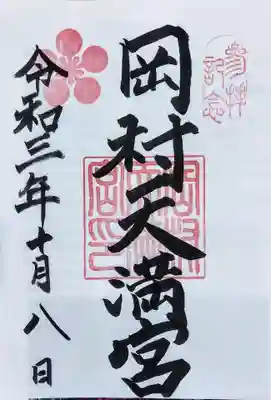 参拝
記念
岡村天満宮
令和三年十月八日